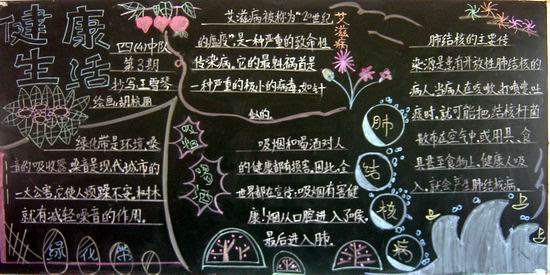 健康
生活
四(4)中队
第3期
抄写:王雪琴
绘画:胡桢用
绿化带是环境噪
音的吸收器,噪音是现代城市的
一大公害,它使人烦躁不安,树木
就有减轻噪音的作用。
绿化带
艾滋病被称为“20世纪
的瘟疫”,是一种严重的致命性
传染病,它的最初祸首是
一种严重的极小的病毒,如针
似的。
艾滋病
吸烟
喝酒
吸烟和喝酒对人
的健康都有损害,因此,全
世界都在宣传:吸烟有害健
康!烟从口腔进入了喉,
最后进入肺。
肺结核病
肺结核的主要传
染源是患有开放性肺结核的
病人,当病人在咳嗽、打喷嚏吐
痰时,就可能把结核杆菌
散布在空气中,或用具、食
具甚至食物上,健康人吸
入,就会产生肺结核病。